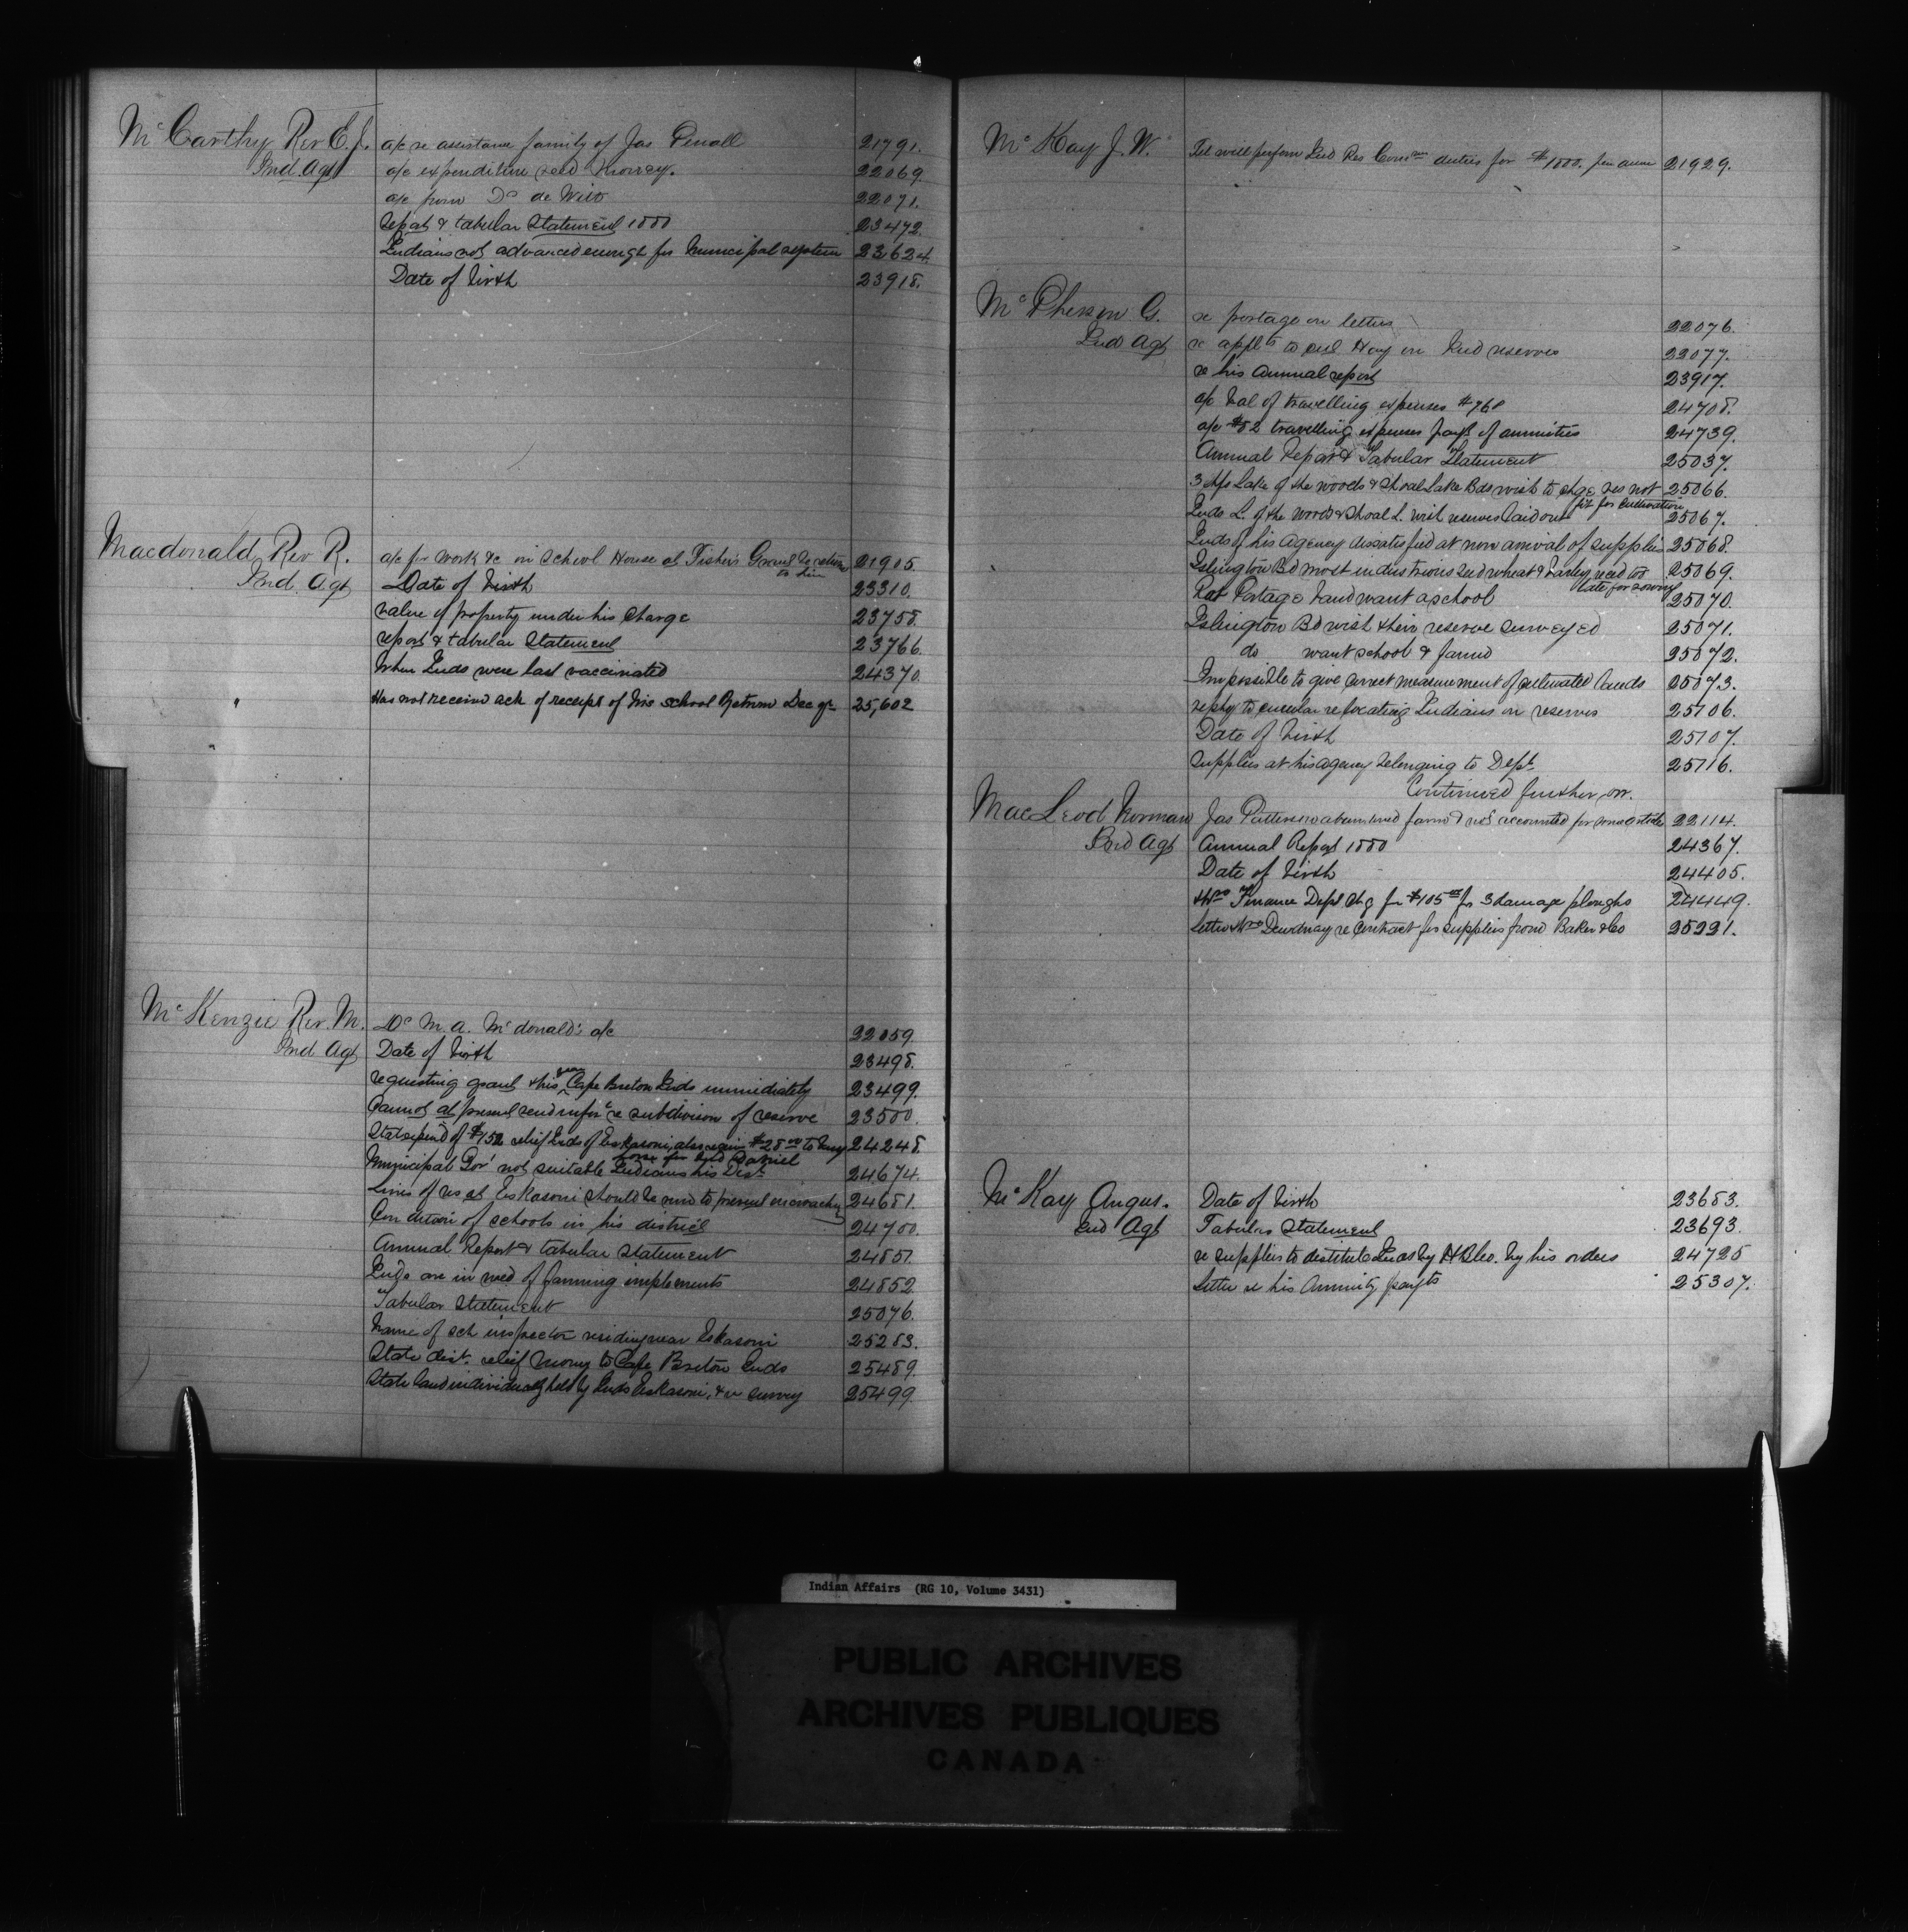 McCarthy Rev E. J.
Ind. Agt
a/c re assistance family of Jas Penall 21791.
a/c expenditure seed Morrey. 22069
a/c from Dr de Witt 22071.
report & tabular Statement 1880 23472.
Indians not advanced enough for Municipal system 23624.
Date of birth 23918.
Macdonald Rev R.
Ind. Agt
a/c for work &c on School House at Fisher's Grant to return to him 21905.
Date of birth 23310.
value of property under his charge 23758.
report & tabular Statement 23766.
When Inds were last vaccinated 24370.
Has not received ack of receipt of his School Return Dec qr 25,602
McKenzie Rev. M.
Ind Agt
Dr M. A. McDonald's a/c 22059
Date of birth 23498.
requesting grant this year Cape Breton Inds immediately 23499.
Cannot at present send infon re subdivision of reserve 23500.
State expend of $152 relief Inds of Eskasoni also $28.00 to 24248.
Municipal Govt not suitable Indians his Dist. 24674.
Lines of res at Eskasoni should be run to prevent encroaching 24681.
Condition of schools in his district 24700.
Annual Report & tabular statement 24851.
Inds are in need of farming implements 24852
Tabular Statement 25076.
Name of sch inspector residing near Eskasoni 25283.
State dist. relief money to Cape Breton Inds 25489.
State land individually held by Inds Eskasoni, & re survey 25499.
McKay J. W.
Tel will perform Ind Res Comn duties for $1800. per annum 21929.
McPherson G.
Ind Agt
re postage on letters 22076.
re applts to cut Hay on Ind reserves 22077.
re his annual report 23917.
a/c bal of travelling expenses $768 24708.
a/c $82 travelling expenses payt of annuities 24739.
Annual Report & Tabular Statement 25037.
3 chfs Lake of the woods & Shoal Lake Bds wish to chge res not fit for cultivation 25066.
Inds L. of the Woods & Shoal L. wish reserves laid out 25067.
Inds of his Agency dissatisfied at non arrival of supplies 25068.
Islington Bd most industrious seed wheat & barley recd too late for sowing 25069.
Rat Portage band want a school 25070.
Islington Bd wish their reserve surveyed 25071.
do want school & farmer 25072.
Impossible to give correct measurement of cultivated lands 25073.
reply to circular re locating Indians on reserves 25106.
Date of birth 25107.
Supplies at his agency belonging to Dept. 25116.
Continued further on.
MacLeod Norman
Ind Agt
Jas Patterson abandoned farm & not accounted for some articles 22114.
Annual Report 1880 24367.
Date of birth 24405.
Finance Dept chg for $105.00 for 3 damage ploughs 24449.
Letter Dewdney re contract for supplies from Baker & Co 25221.
McKay Angus.
Ind Agt
Date of birth 23683.
Tabular Statement 23693.
re supplies to destitute Inds by H B Co. by his orders 24725
Letter re his Annuity payts 25307.
Indian Affairs (RG 10, Volume 3431)
PUBLIC ARCHIVES
ARCHIVES PUBLIQUES
CANADA